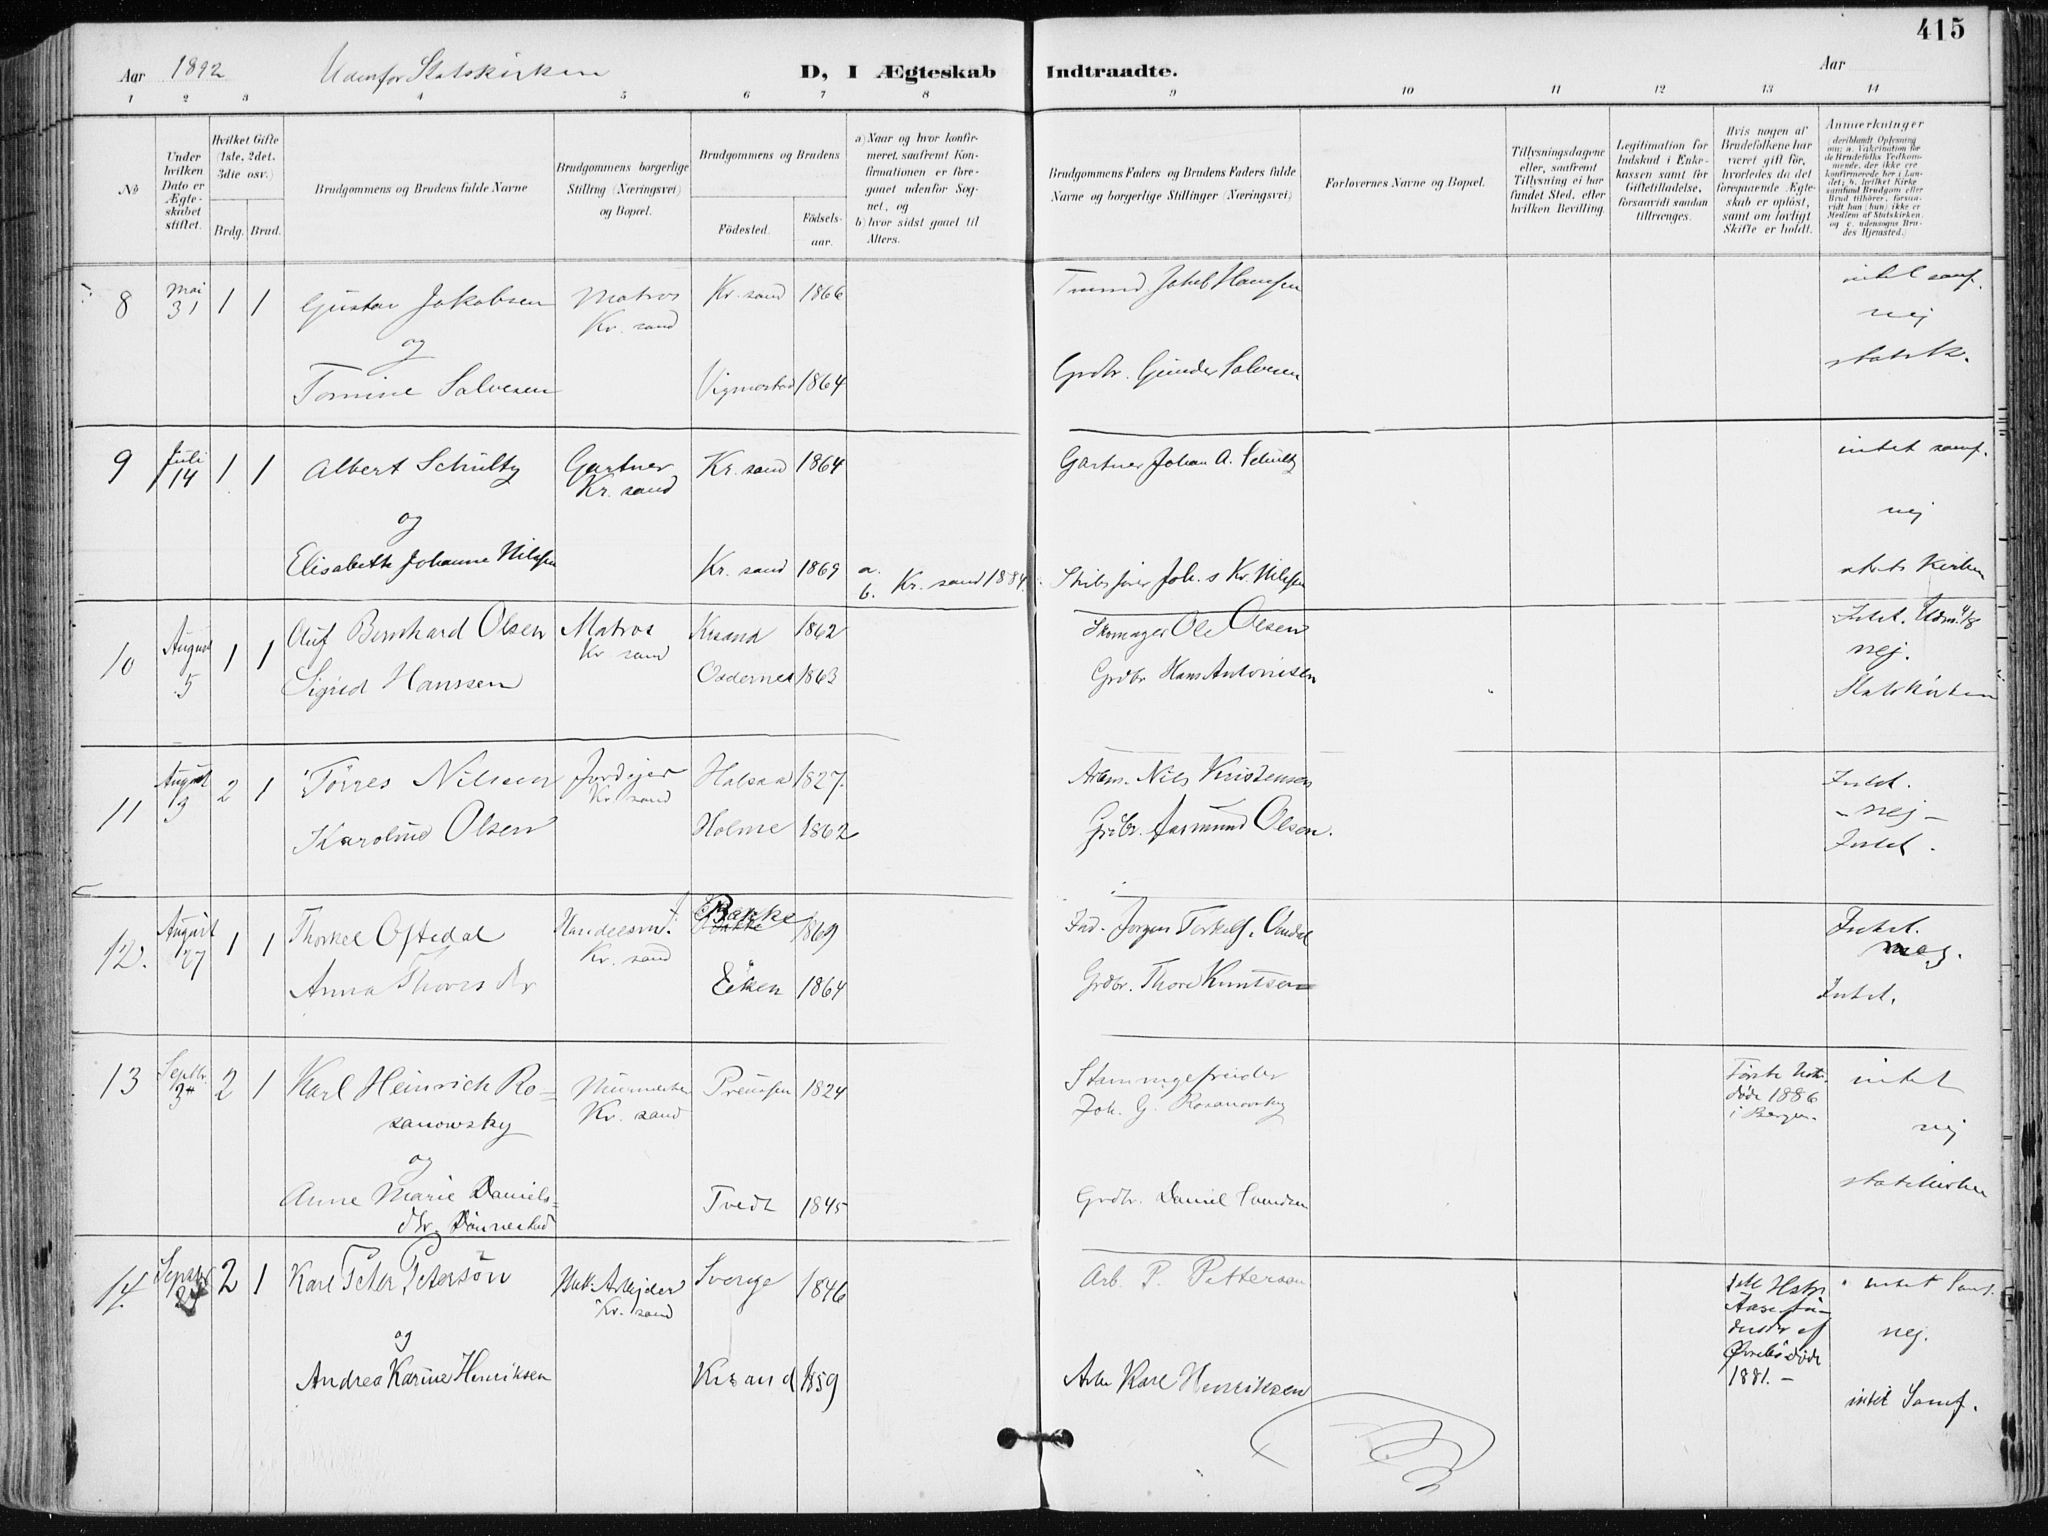 415
Aar 1892 Udenfor Statskirken D, I Ægteskab Indtraadte. Aar
1 2 3 4 5 6 7 8 9 10 11 12 13 14
No
Under hvilken Dato er Ægteskabet stiftet.
Hvilket Gifte (1ste, 2det, 3die osv.)
Brdg. Brud.
Brudgommens og Brudens fulde Navne
Brudgommens borgerlige Stilling (Næringsvei) og Bopæl.
Brudgommens og Brudens
Fødested. Fødselsaar.
a) Naar og hvor konfirmeret, saafremt Konfirmationen er foregaaet udenfor Sognet, og
b) hvor sidst gaaet til Alters.
Brudgommens Faders og Brudens Faders fulde Navne og borgerlige Stillinger (Næringsvei)
Forlovernes Navne og Bopæl.
Tillysningsdagene eller, saafremt Tillysning ei har fundet Sted, efter hvilken Bevilling.
Legitimation for Indskud i Enkekassen samt for Giftetilladelse, forsaavidt saadan tiltrænges.
Hvis nogen af Brudefolkene har været gift før, hvorledes da det foregaaende Ægteskab er opløst, samt om lovligt Skifte er holdt.
Anmærkninger
(deriblandt Oplysning om: a. Vakcination for de Brudefolks Vedkommende, der ikke ere konfirmerede her i Landet; b. hvilket Kirkesamfund Brudgom eller Brud tilhører, forsaavidt han (hun) ikke er Medlem af Statskirken, og c. udensogns Brudes Hjemsted.)
8 Mai 31 1 1 Gustav Jakobsen Matros Kr. sand Kr. sand 1866 Jakob Hansen intet samf.
og nej
Tomine Salvesen Vigmostad 1864 Grdbr. Gunder Salvesen statsk.
9 Juli 14 1 1 Albert Schultz Gartner Kr. sand Kr. sand 1864 Gartner Johan A. Schultz intet samf.
og nej
Elisabeth Johanne Nilsen Kr. sand 1869 a. b. Kr. sand 1884. Kr. Nilsen stats Kirken
10 August 5 1 1 Oluf Bernhard Olsen Matros Kr. sand Krsand 1862 Skomager Ole Olsen Intet.
nej.
Sigrid Hanssen Oddernes 1863 Grdbr Hans Antonisen Statskirken
11 August 13 2 1 Tørres Nilsen Jordejer Kr. sand Halsaa 1827. Arbm. Nils Kristensen Intet.
- nej -
Karoline Olsen Holme 1862 Grdbr. Aasmund Olsen. Intet.
12. August 27 1 1 Thorkel Oftedal Handelsm. Kr. sand Bakke 1869 Ind. Jørgen Torkels. Intet.
nej.
Anna Thores dr Eiken 1864 Grdbr. Thore Knutsen Intet.
13 Septbr. 3 2 1 Karl Heinrich Rosanowsky Murmester Kr. sand Preussen 1824 Joh. G. Rosanowsky Første Hstr. døde 1886 i Bergen. intet
og nej
Anne Marie Danielsdtr. Dønnestad Tvedt 1845 Grdbr. Daniel Svendsen statskirken
14. Septbr 2 1 Karl Peter Petersøn Arbejder Kr. sand Sverige 1846 Arb. P. Petterson døde 1881. - intet Samf.
og nej.
Andrea Karine Henriksen Krsand 1859 Arb. Karl Henriksen intet Samf.